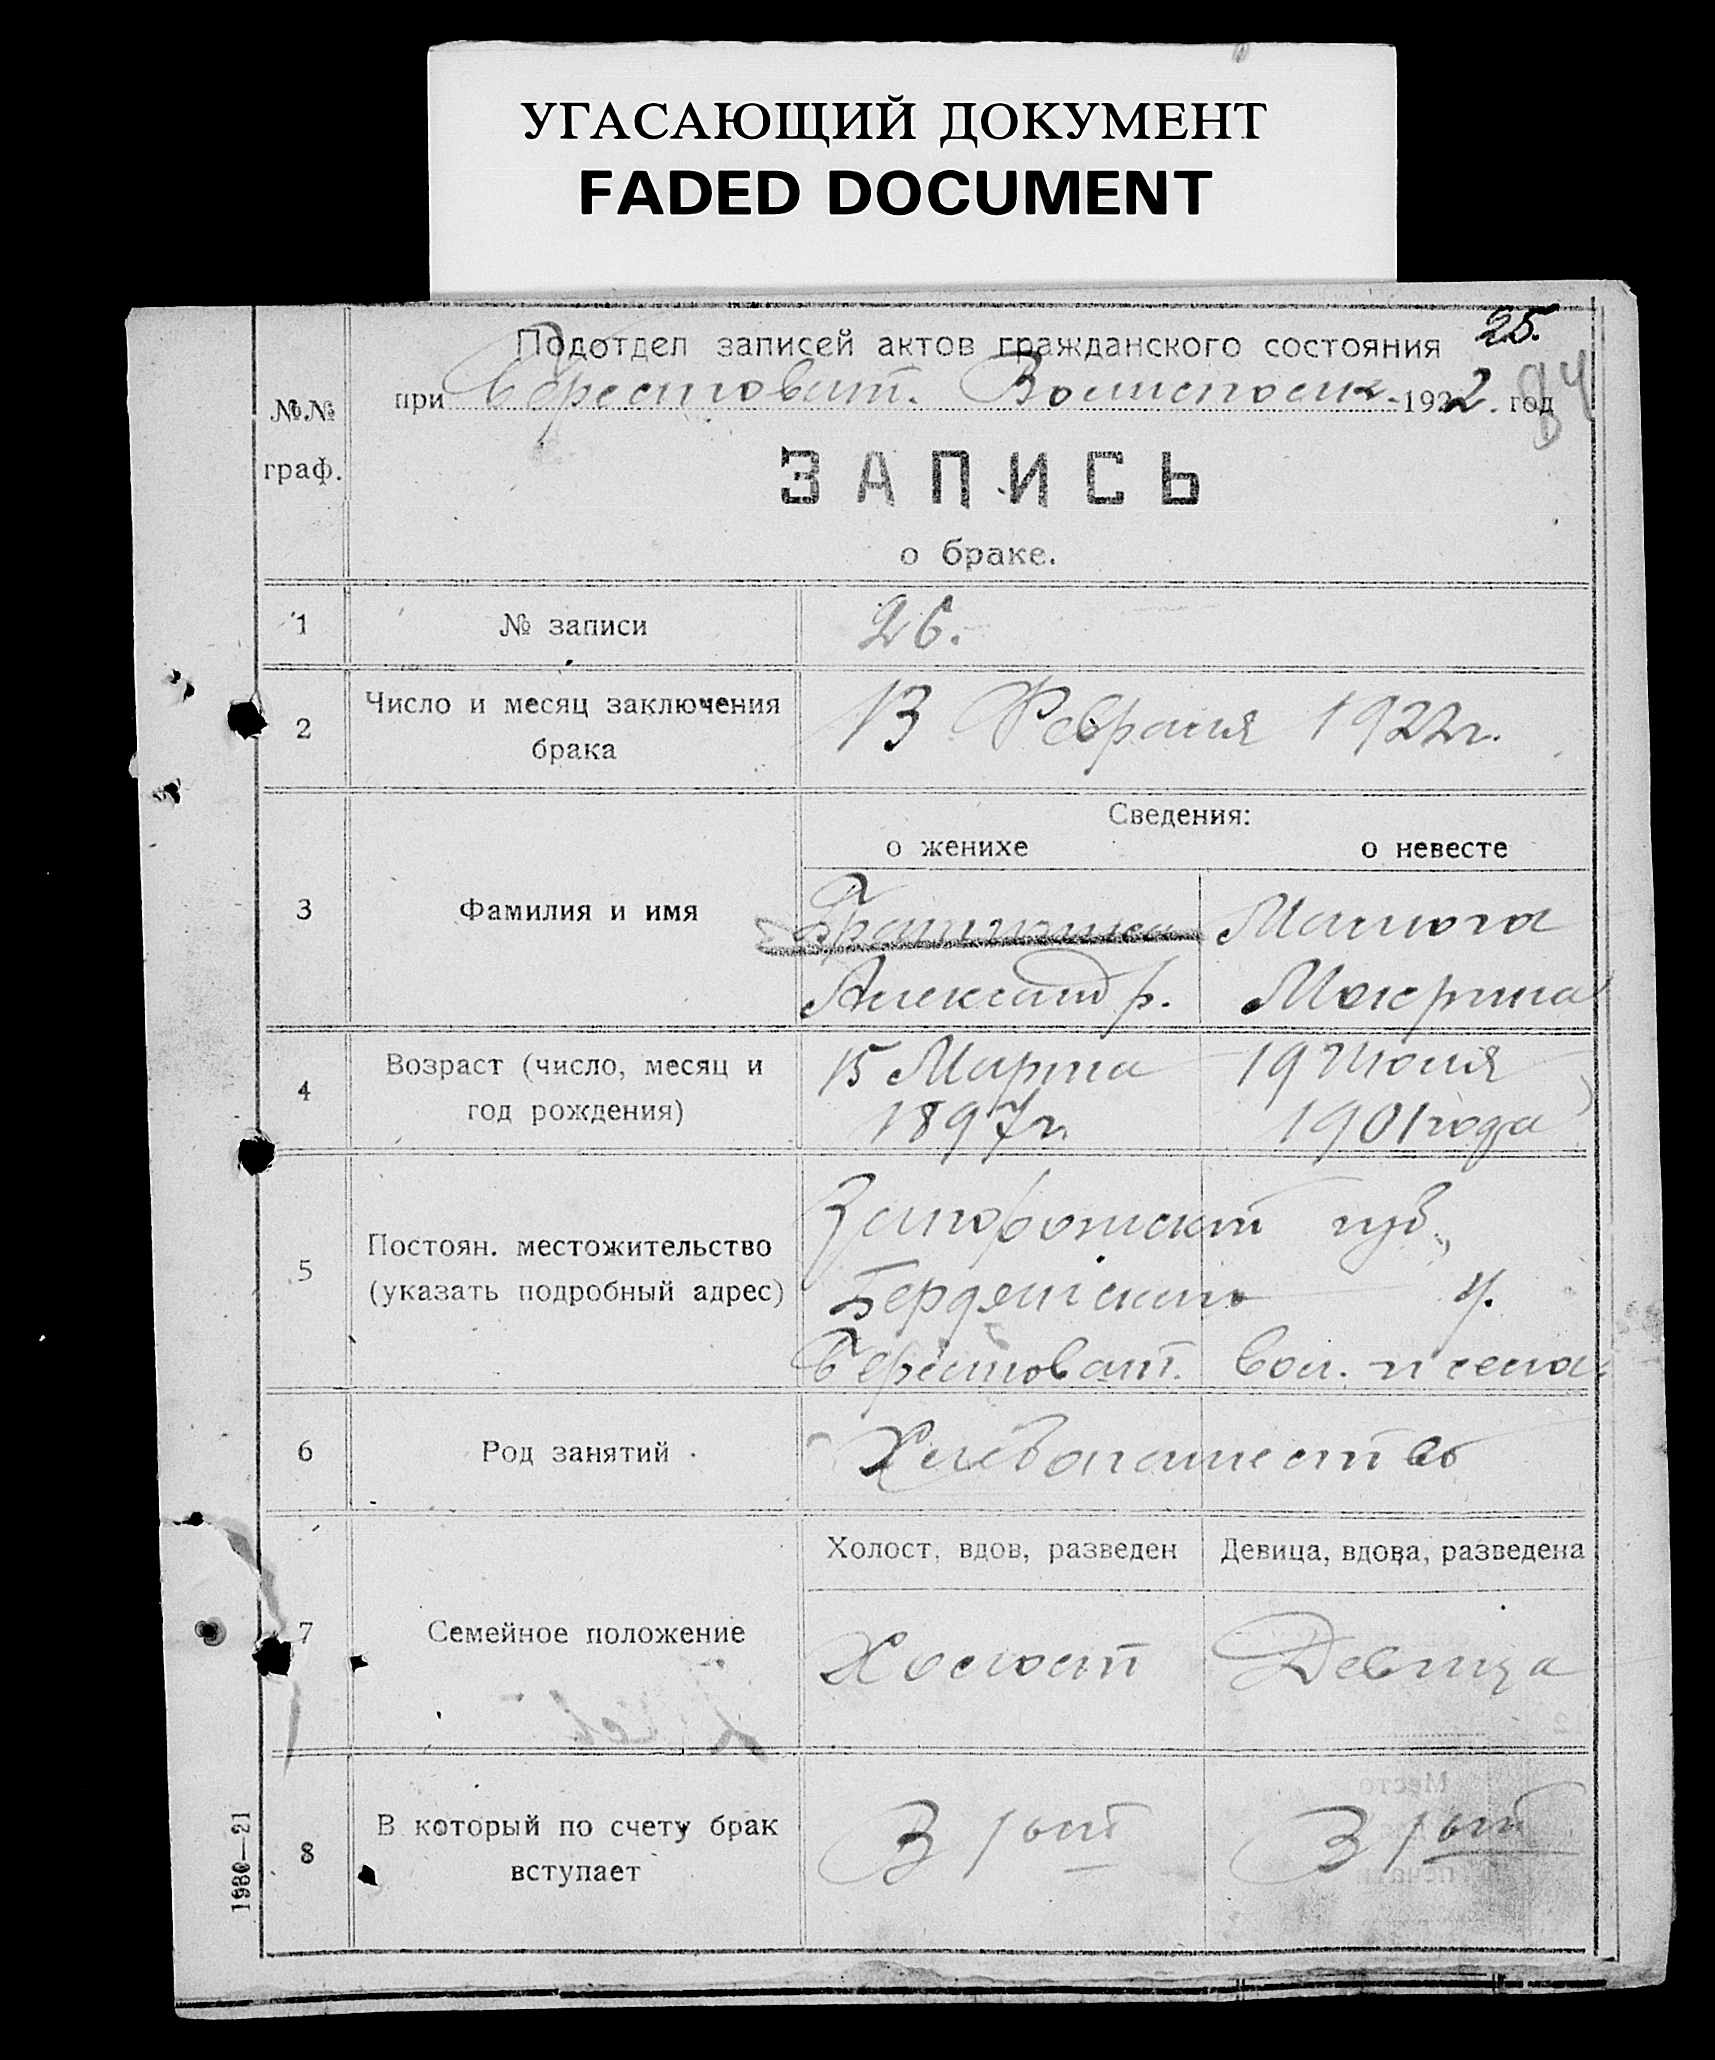 УГАСАЮЩИЙ ДОКУМЕНТ
FADED DOCUMENT
25.
Подотдел записей актов гражданского состояния
84
при Берестоват. Волисполк. 1922. год
№№
граф.
ЗАПИСЬ
о браке.
1 № записи 26.
2 Число и месяц заключения
брака
13 Февраля 1922 г.
Сведения:
о женихе о невесте
3 Фамилия и имя
Манюга
Александр. Мокрина
4 Возраст (число, месяц и
год рождения)
15 Марта 19 Июля
1897 г. 1901 года
5 Постоян. местожительство
(указать подробный адрес)
Запорожской губ.,
Бердянского у.
Берестоват. вол. и села.
6 Род занятий Хлебопашество
7 Семейное положение
Холост, вдов, разведен Девица, вдова, разведена
Холост Девица
8 В который по счету брак
вступает
В 1ый В 1ый
1980—21